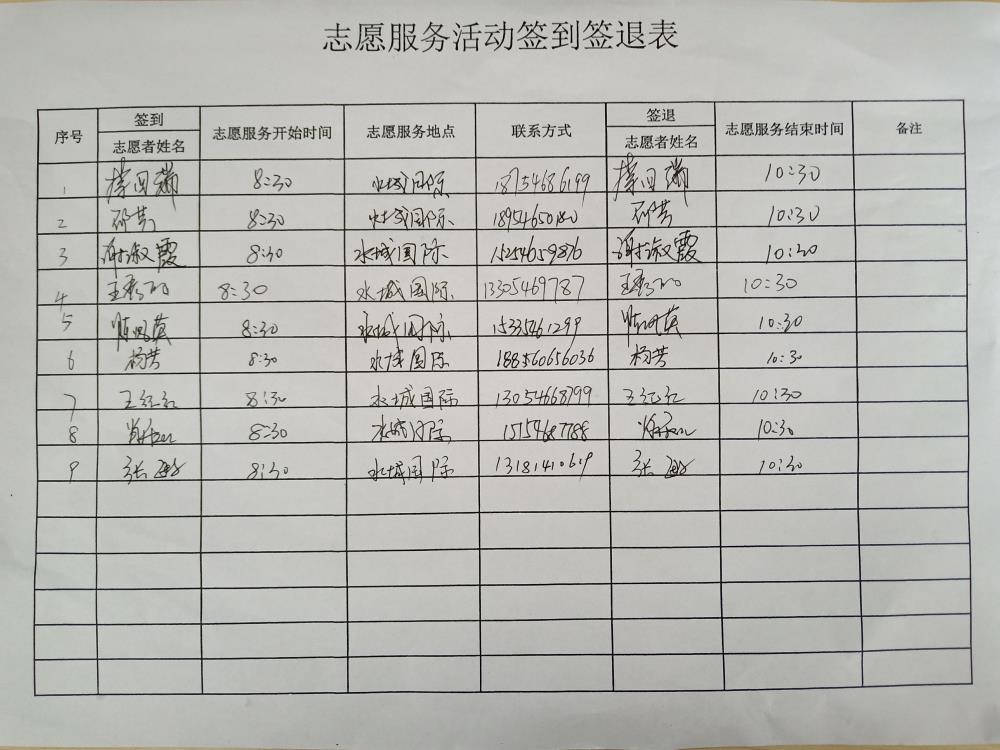 志愿服务活动签到签退表
序号 签到 志愿者姓名 志愿服务开始时间 志愿服务地点 联系方式 签退 志愿者姓名 志愿服务结束时间 备注
1 8:30 水城国际 18754686199 10:30
2 8:30 水城国际 18954650180 10:30
3 谢淑霞 8:30 水城国际 15254659876 谢淑霞 10:30
4 8:30 水城国际 13305469787 10:30
5 8:30 水城国际 15335461299 10:30
6 杨芳 8:30 水城国际 188560656036 杨芳 10:30
7 王红红 8:30 水城国际 13054668799 王红红 10:30
8 8:30 水城国际 15154687788 10:30
9 张 8:30 水城国际 13181410619 张 10:30